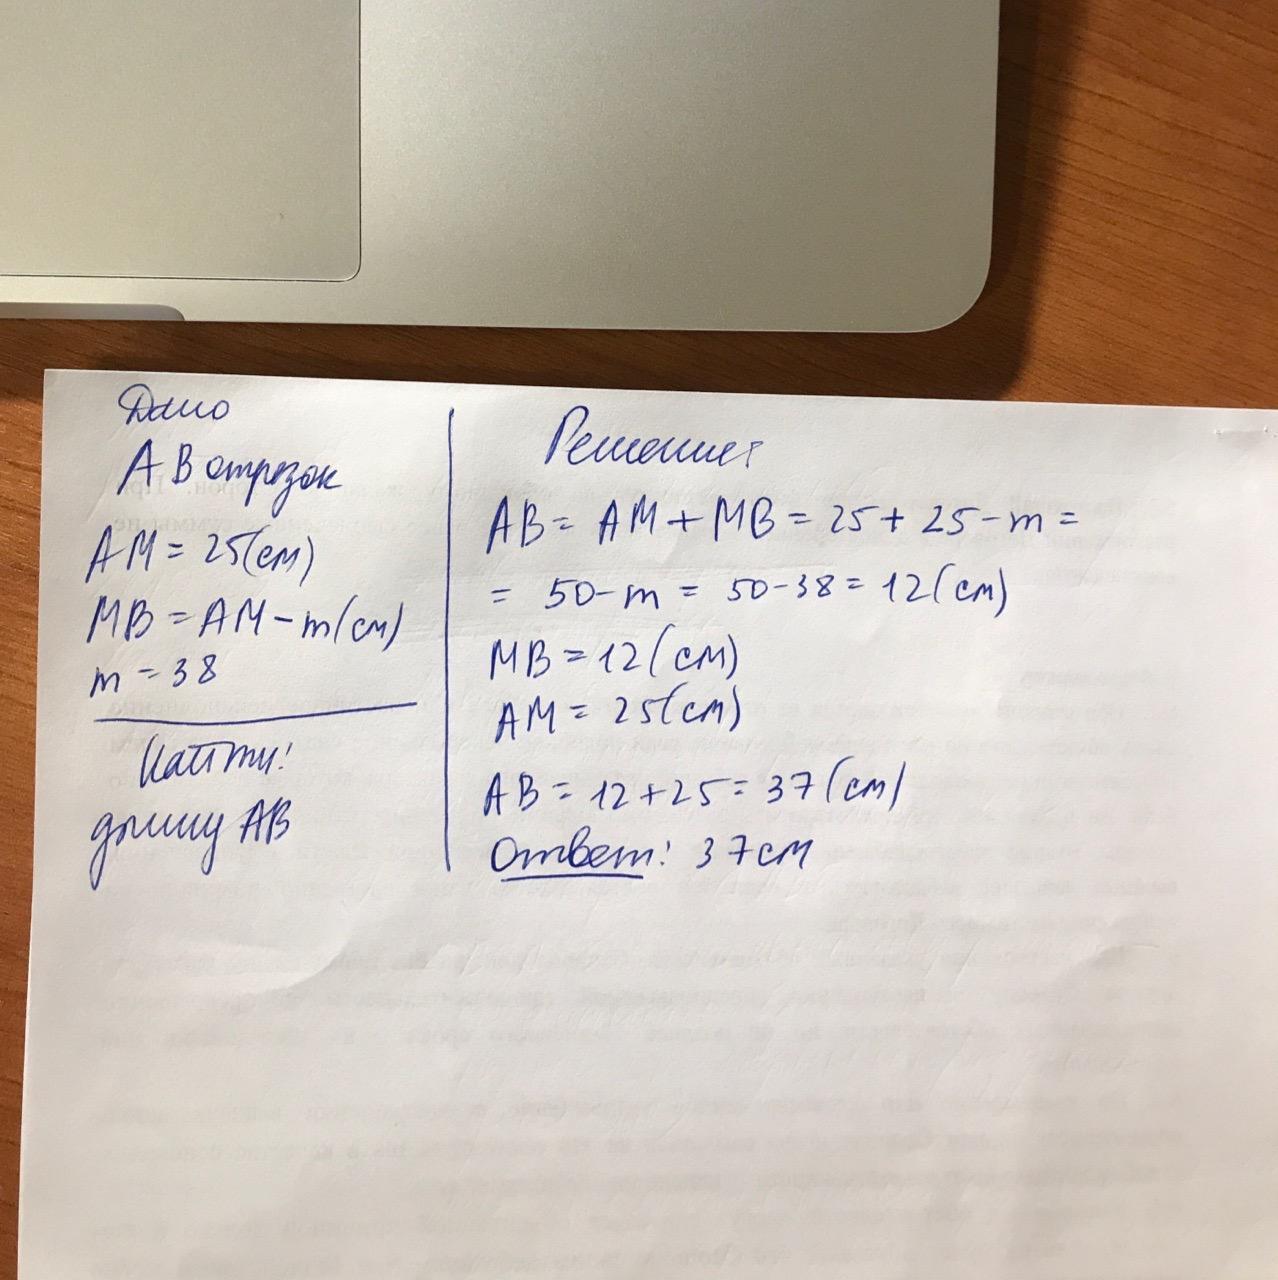 Дано
AB отрезок
AM = 25(см)
MB = AM - m(см)
m = 38
Найти:
длину AB
Решение:
AB = AM + MB = 25 + 25 - m =
= 50 - m = 50 - 38 = 12(см)
MB = 12(см)
AM = 25(см)
AB = 12 + 25 = 37(см)
Ответ: 37см